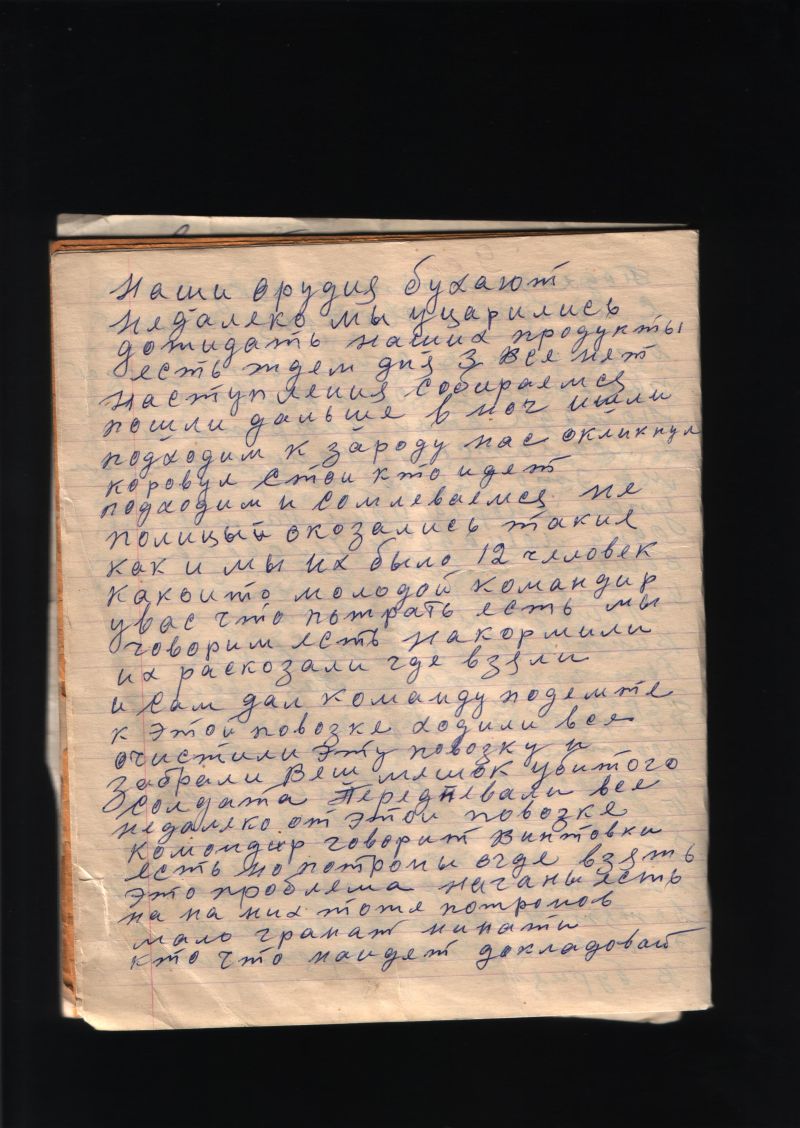 Наши орудия бухают
недалеко мы уцарились
дожидать наших продукты
есть ждем дня 3 все нет
наступления собираемся
пошли дальше в ноч ишли
подходим к зароду нас окликнул
коровул стои кто идет
подходим и сомлеваемся не
полицый оказались такие
как и мы их было 12 человек
какоито молодой командир
увас что пожрать есть мы
говорим есть накормили
их расказали где взяли
и сам дал команду подемте
к этой повозке ходили все
очистили эту повозку и
забрали вещ мешок убитого
солдата Передневали все
недалеко от этой повозке
Командир говорит винтовки
есть но потроны где взять
это проблема наганы есть
на них тоже потронов
мало гранат
кто что найдет докладоват